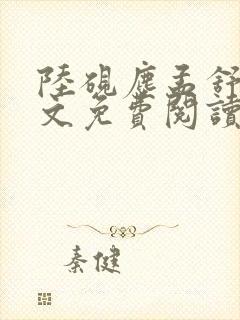 陸硯塵孟舒
文免費閱讀
秦健